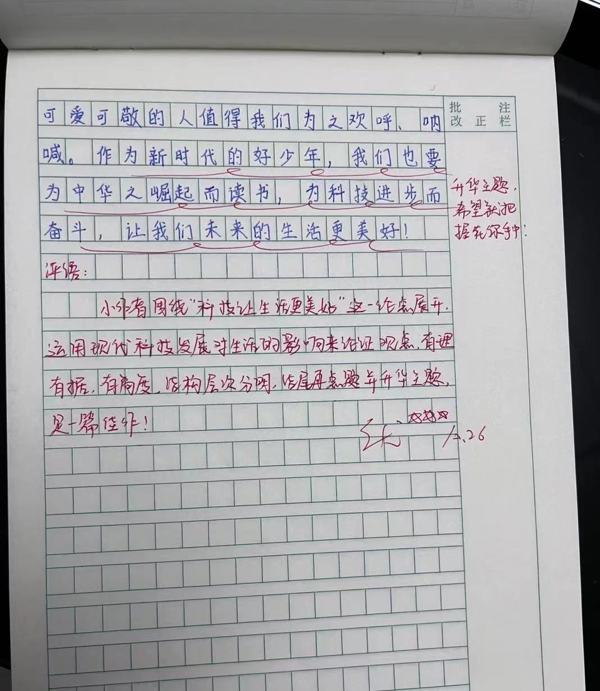 批 注
改 正 栏
可爱可敬的人值得我们为之欢呼、呐
喊。作为新时代的好少年，我们也要
为中华之崛起而读书，为科技进步而
奋斗，让我们未来的生活更美好！
升华主题，
希望就把
握在你手中！
评语：
小作者围绕“科技让生活更美好”这一论点展开，
运用现代科技发展对生活的影响来论证观点，有理
有据，有高度，结构层次分明，结尾再点题并升华主题，
是一篇佳作！
12.26